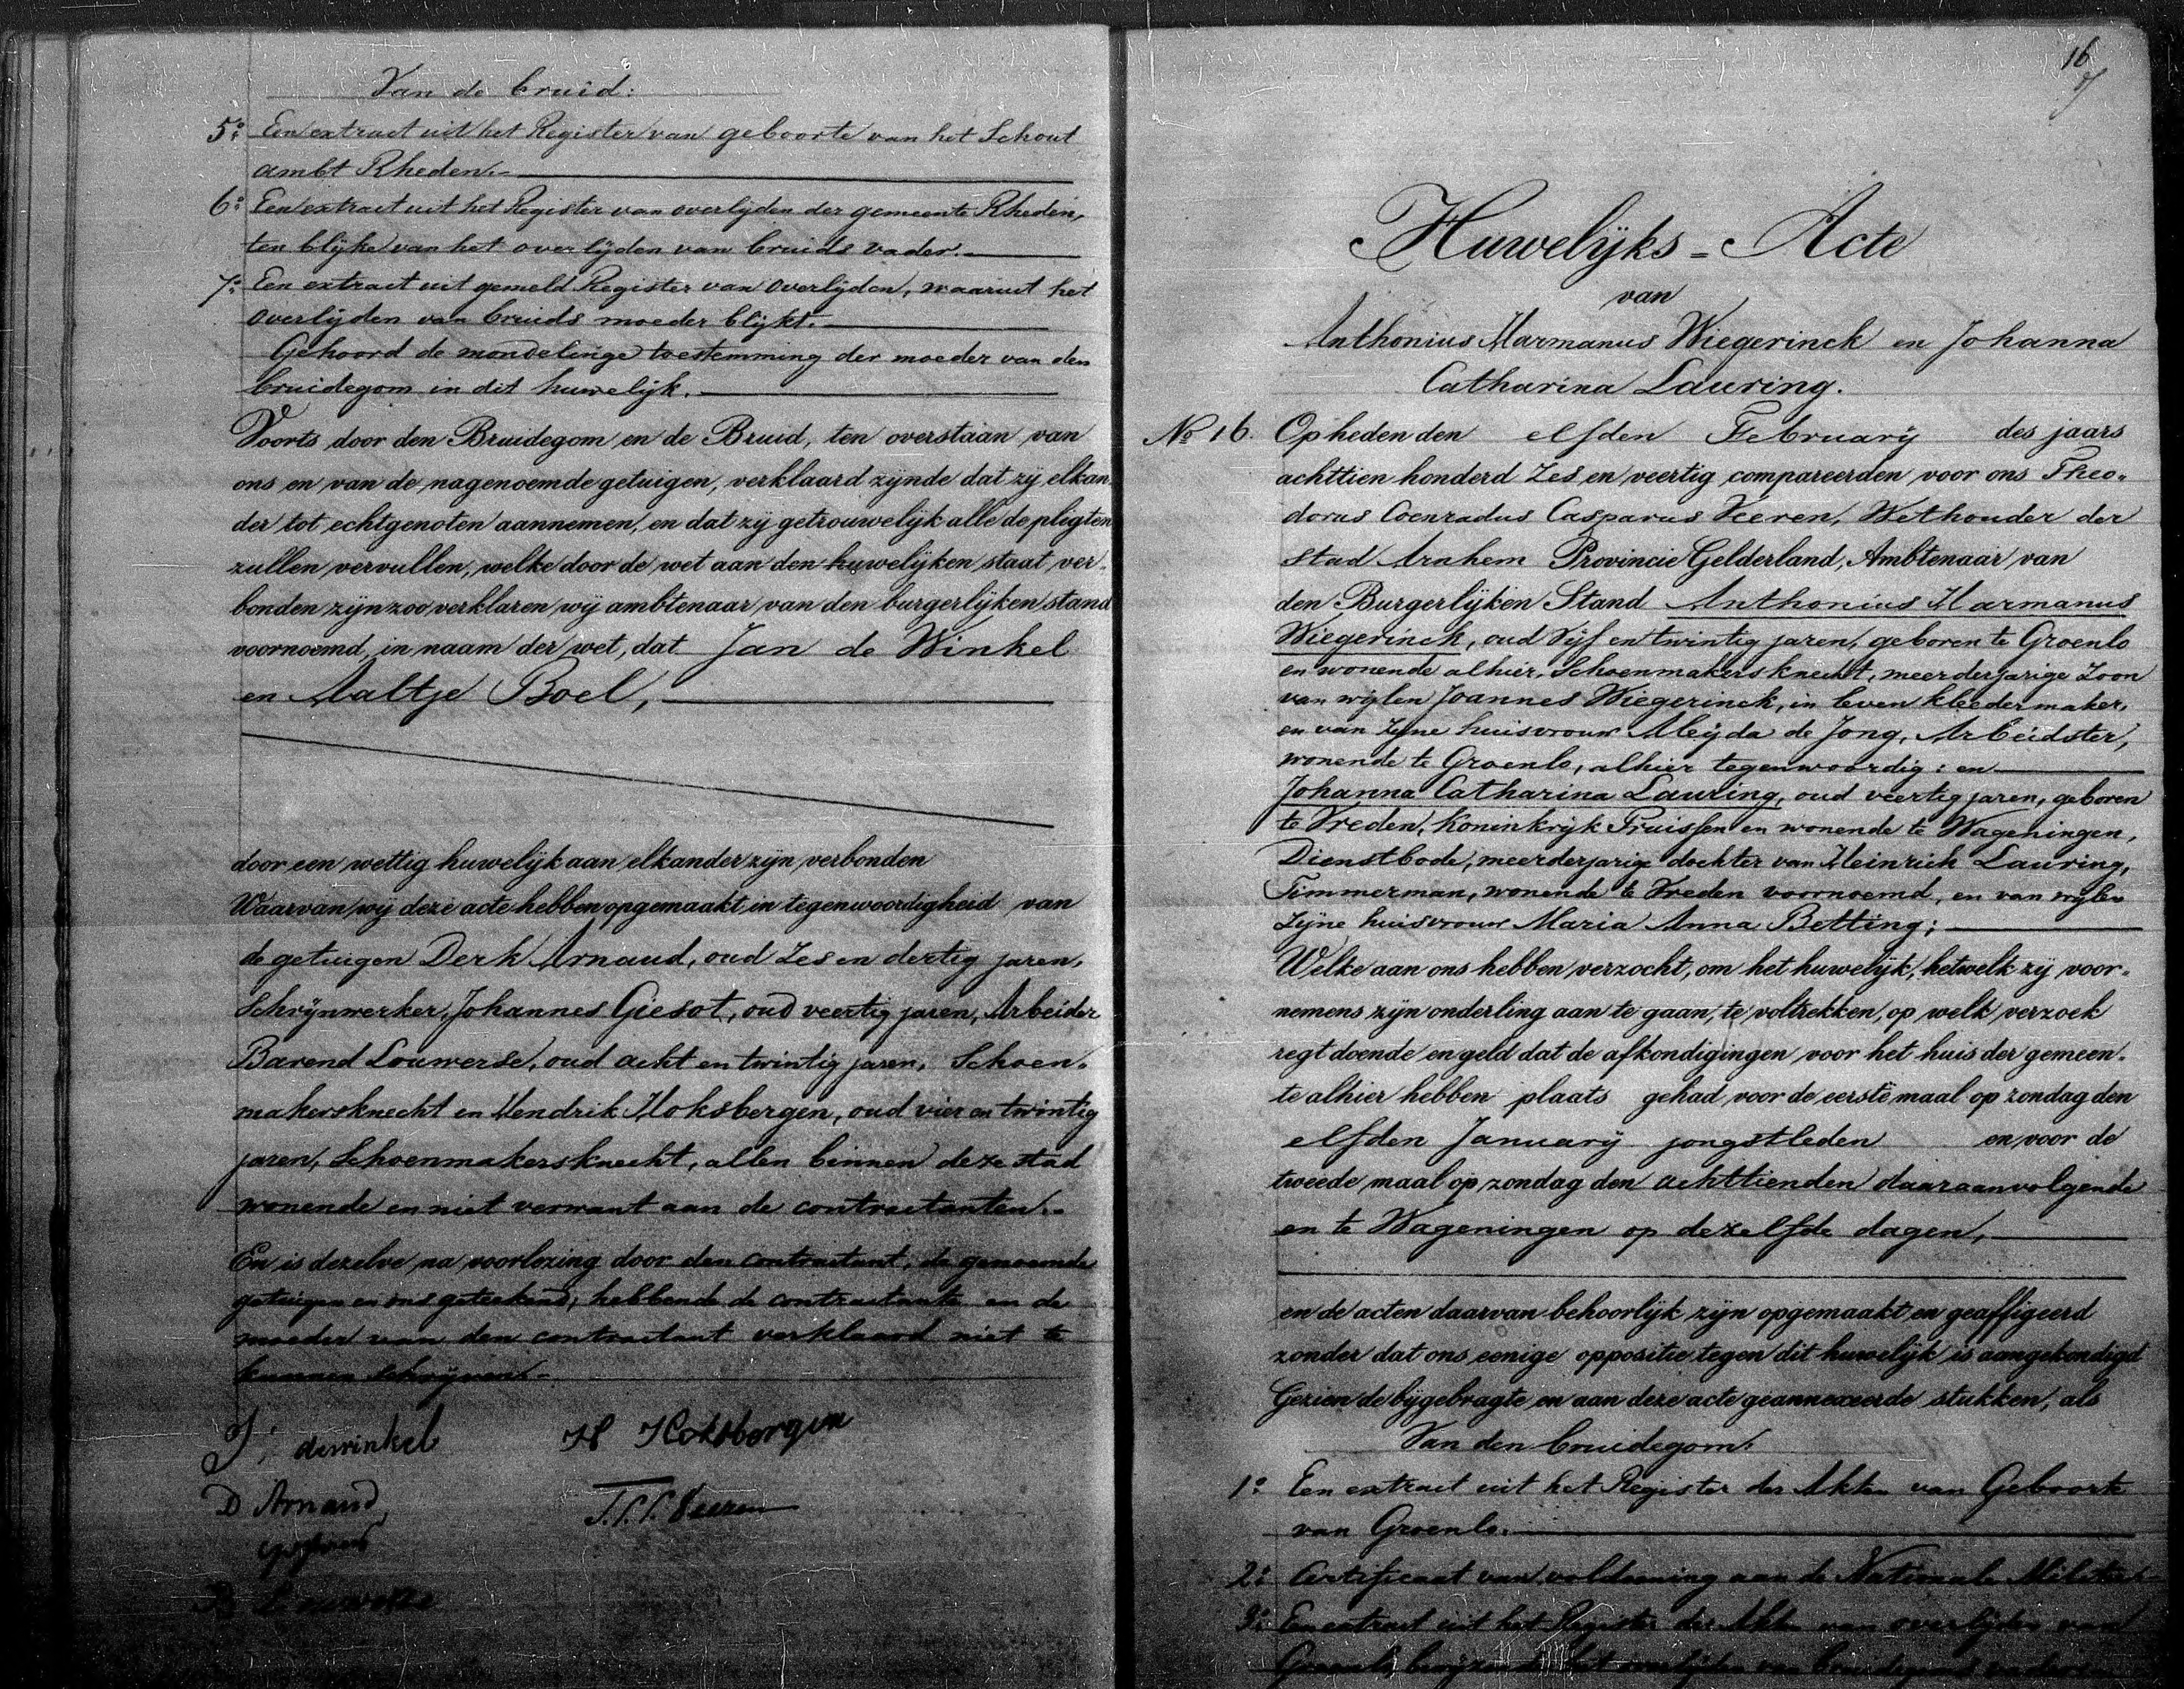 Van de bruid:
5o: Een extract uit het Register van geboorte van het Schout
ambt Rheden.-
6o: Een extract uit het Register van overlijden der gemeente Rheden,
ten blijke van het overlijden van bruids vader.-
7o: Een extract uit gemeld Register van overlijden, waaruit het
overlijden van bruids moeder blijkt.
Gehoord de mondelinge toestemming der moeder van den
bruidegom in dit huwelijk.
Voorts door den Bruidegom en de Bruid, ten overstaan van
ons en van de nagenoemde getuigen, verklaard zijnde dat zij elkan
der tot echtgenoten aannemen, en dat zij getrouwelijk alle de pligten
zullen vervullen, welke door de wet aan den huwelijken staat ver-
bonden zijn zoo verklaren wij ambtenaar van den burgerlijken stand
voornoemd, in naam der wet, dat Jan de Winkel
en Aaltje Boel,
door een wettig huwelijk aan elkander zijn verbonden
Waarvan wij deze acte hebben opgemaakt in tegenwoordigheid van
de getuigen Derk Arnaud, oud Zes en dertig jaren,
Schrijnwerker, Johannes Giesot, oud veertig jaren, Arbeider
Barend Louwerse, oud acht en twintig jaren, Schoen-
makersknecht en Hendrik Hoksbergen, oud vier en twintig
jaren, Schoenmakersknecht, allen binnen deze stad
wonende en niet verwant aan de contractanten.-
En is dezelve na voorlezing door den contractant, de genoemde
getuigen en ons geteekend, hebbende de contractante en de
moeder van den contractant verklaard niet te
kunnen schrijven.-
J: dewinkel H Hoksbergen
D Arnaud
16
Huwelijks-Acte
van
Anthonius Harmanus Wiegerinck en Johanna
Catharina Lauring.
No 16. Op heden den elfden February des jaars
achttien honderd Zes en veertig compareerden voor ons Theo-
dorus Coenradus Casparus Veeren, Wethouder der
stad Arnhem Provincie Gelderland, Ambtenaar van
den Burgerlijken Stand Anthonius Harmanus
Wiegerinck, oud Vijf en twintig jaren, geboren te Groenlo
en wonende alhier, Schoenmakersknecht, meerderjarige Zoon
van wijlen Joannes Wiegerinck, in leven kleedermaker,
en van zijne huisvrouw Aleijda de Jong, Arbeidster,
wonende te Groenlo, alhier tegenwoordig: en
Johanna Catharina Lauring, oud veertig jaren, geboren
te Vreden, Koninkrijk Pruissen en wonende te Wageningen,
Dienstbode, meerderjarige dochter van Heinrich Lauring,
Timmerman, wonende te Vreden voornoemd, en van wijlen
Zijne huisvrouw Maria Anna Betting;
Welke aan ons hebben verzocht, om het huwelijk, hetwelk zij voor-
nemens zijn onderling aan te gaan, te voltrekken, op welk verzoek
regt doende en geld dat de afkondigingen voor het huis der gemeen-
te alhier hebben plaats gehad, voor de eerste maal op zondag den
elfden January jongstleden en voor de
tweede maal op zondag den achttienden daaraanvolgende
en te Wageningen op dezelfde dagen,
en de acten daarvan behoorlijk zijn opgemaakt en geaffigeerd
zonder dat ons eenige oppositie tegen dit huwelijk is aangekondigd
Gezien de bijgebragte en aan deze acte geannexeerde stukken, als
Van den bruidegom:
1o: Een extract uit het Register der Akten van Geboorte
van Groenlo.
2o: Certificaat van voldoening aan de Nationale Militie.
3o: Een extract uit het Register der Akten van overlijden van
Groenlo, het overlijden van bruidegoms vader